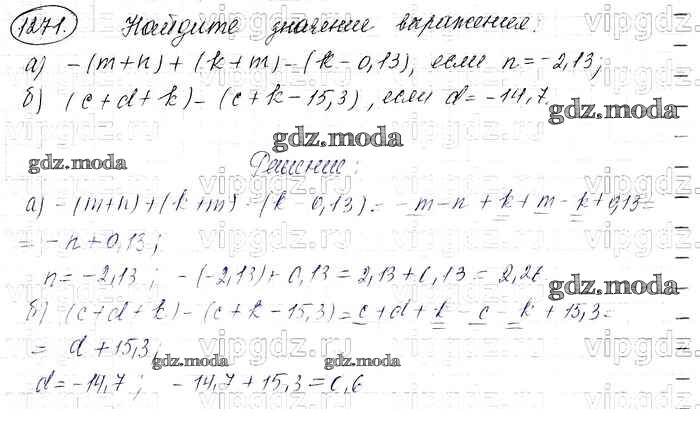 1271. Найдите значение выражения:
а) -(m+n)+(k+m)-(k-0,13), если n=-2,13;
б) (c+d+k)-(c+k-15,3), если d=-14,7.
gdz.moda
gdz.moda
Решение:
а) -(m+n)+(k+m)-(k-0,13)= -m-n+k+m-k+0,13=
= -n+0,13;
n=-2,13; -(-2,13)+0,13=2,13+0,13=2,26.
gdz.moda
б) (c+d+k)-(c+k-15,3)=c+d+k-c-k+15,3=
= d+15,3;
gdz.moda gdz.moda
d=-14,7; -14,7+15,3=0,6
vipgdz.ru